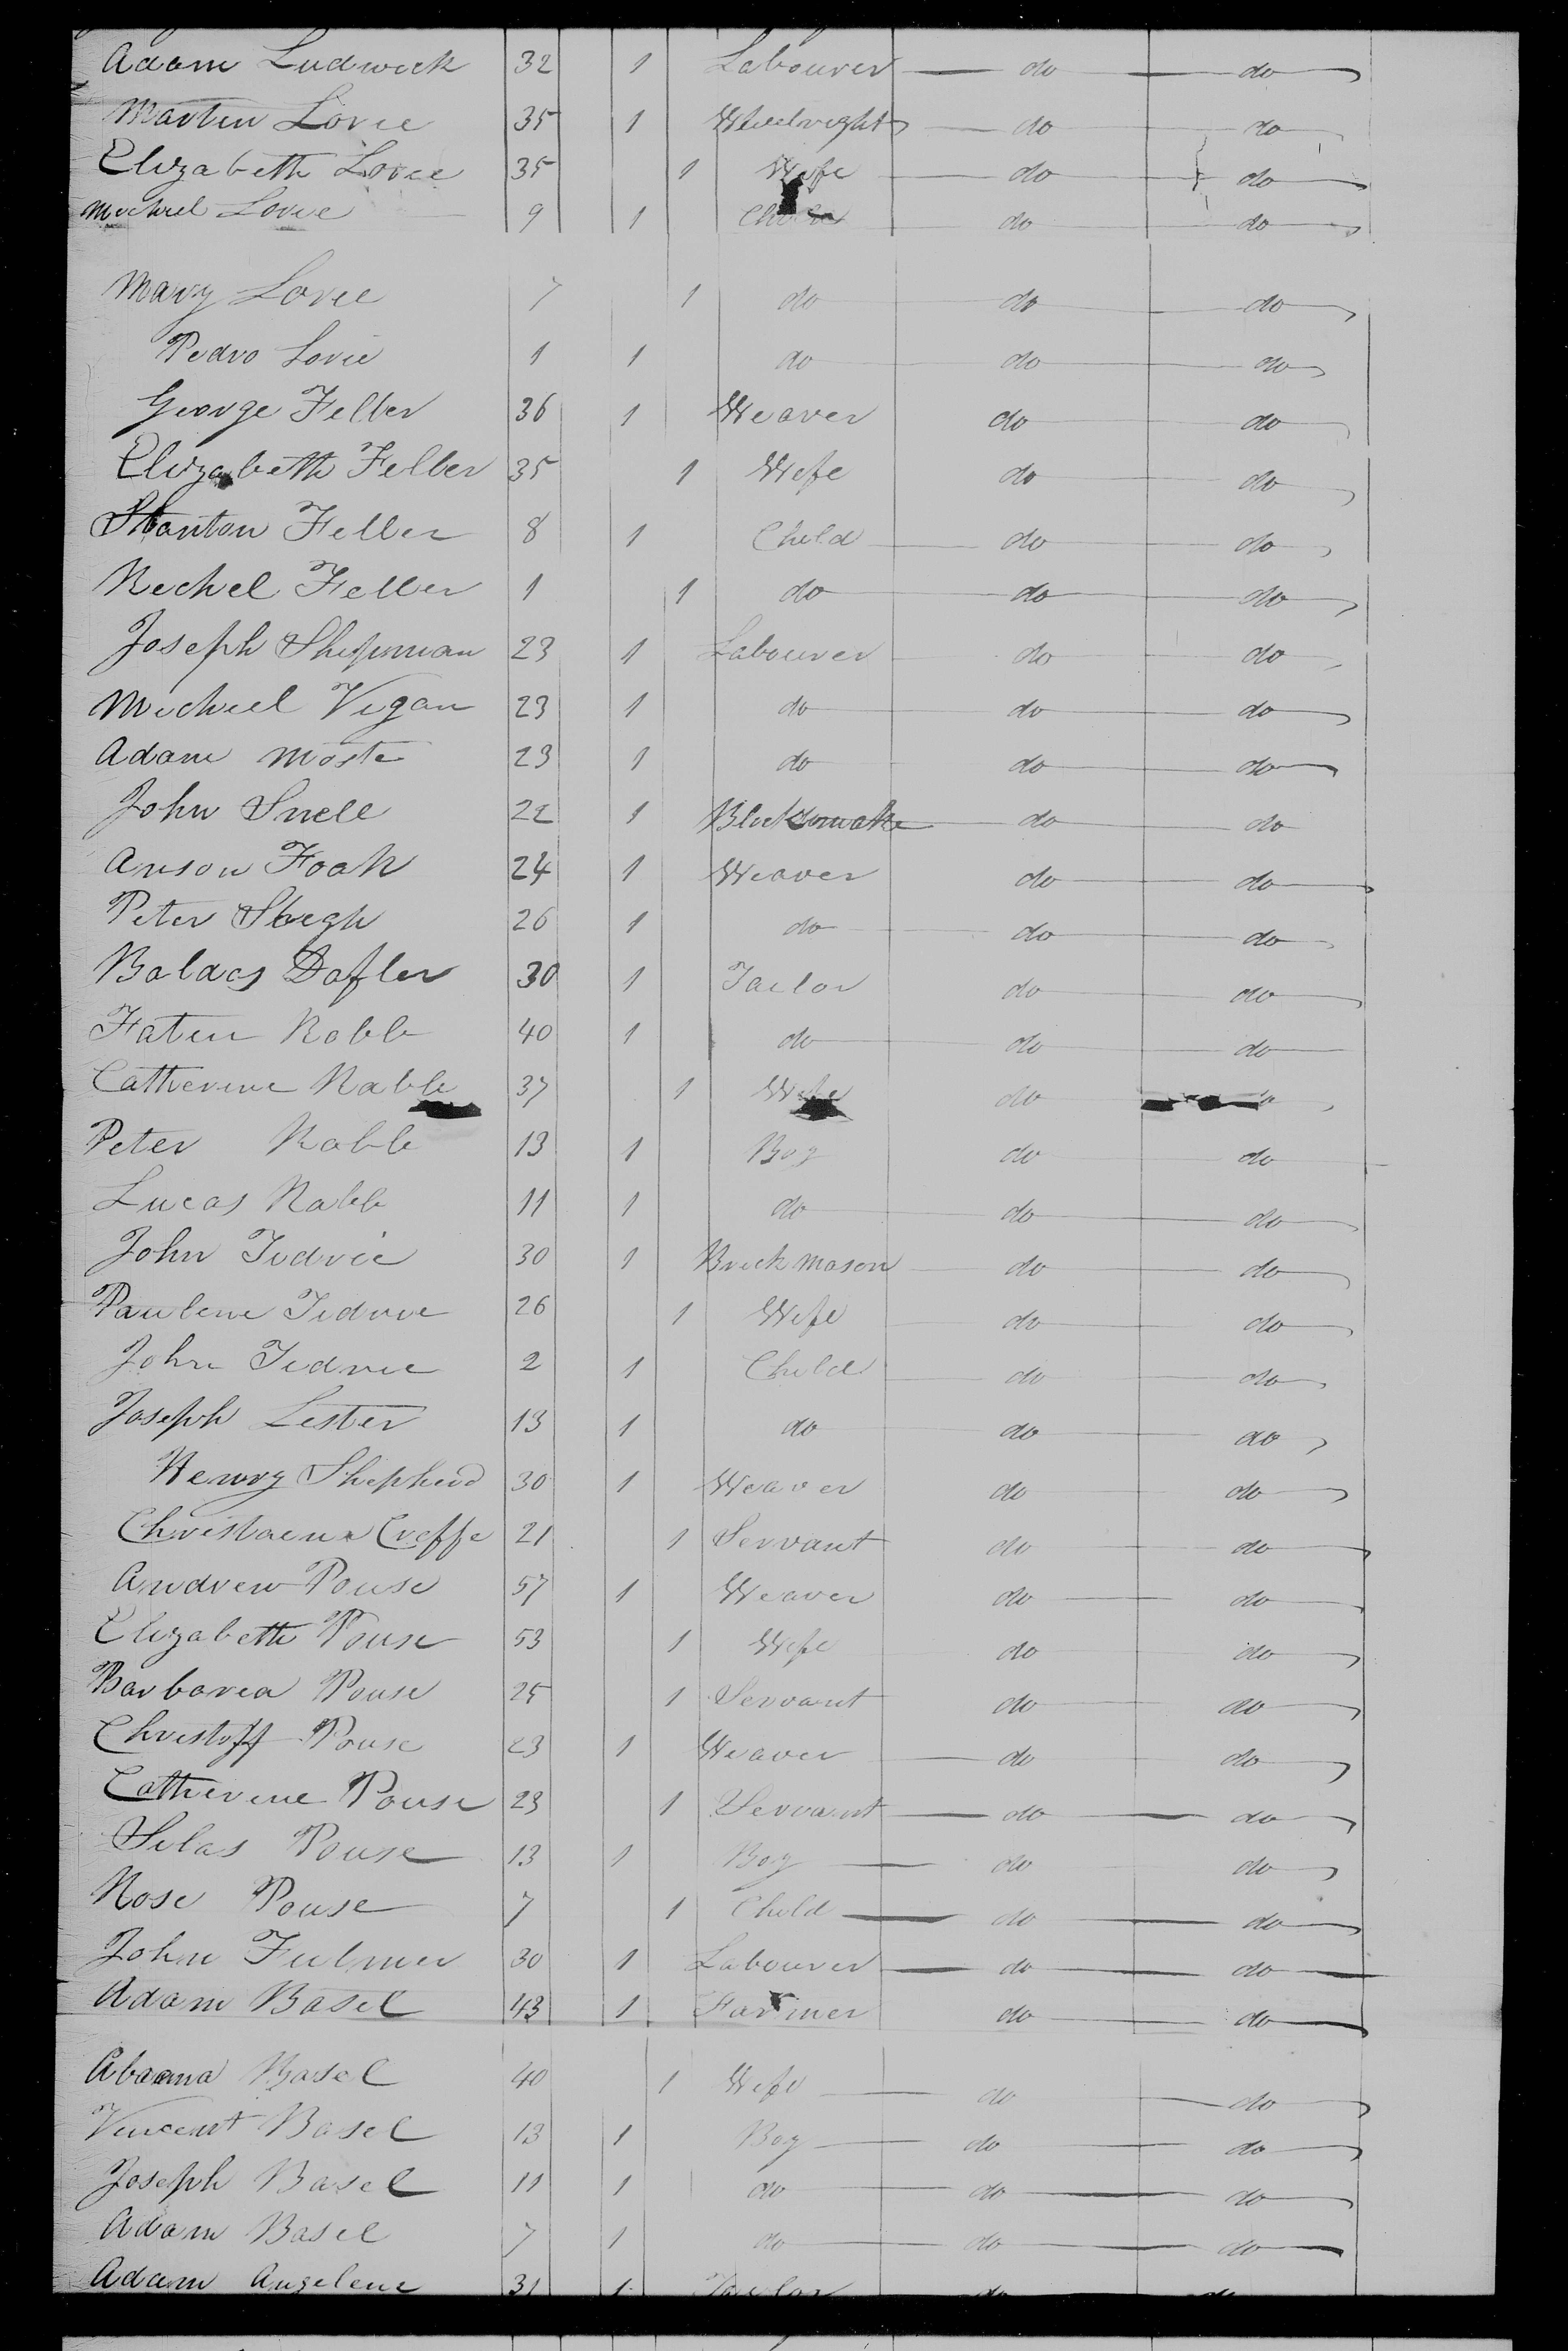 Adam Ludwick 32 1 Labourer do do
Martin Lovie 35 1 Wheelright do do
Elizabeth Lovie 35 1 Wife do do
Michiel Lovie 9 1 Child do do
Mary Lovie 7 1 do do do
Pedro Lovie 1 1 do do do
George Felber 36 1 Weaver do do
Elizabeth Felber 35 1 Wife do do
Stanton Felber 8 1 Child do do
Rechel Felber 1 1 do do do
Joseph Shipman 23 1 Labourer do do
Michiel Vigan 23 1 do do do
Adam Moste 23 1 do do do
John Snell 22 1 do do
Anson Foah 24 1 Weaver do do
Peter 26 1 do do do
Baldas Dafler 30 1 Tailor do do
Faten Rabb 40 1 do do do
Catherine Rabb 37 1 Wife do
Peter Rabb 13 1 Boy do do
Lucas Rabb 11 1 do do do
John Tidvie 30 1 Brick mason do do
Paulene Tidvie 26 1 Wife do do
John Tidvie 2 1 Child do do
Joseph Lester 13 1 do do do
Henry Shepherd 30 1 Weaver do do
Christaena Creffe 21 1 Servant do do
Andrew Pouse 57 1 Weaver do do
Elizabeth Pouse 53 1 Wife do do
Barbarea Pouse 25 1 Servant do do
Christoff Pouse 23 1 Weaver do do
Catherine Pouse 23 1 Servant do do
Silas Pouse 13 1 Boy do do
Rose Pouse 7 1 Child do do
John Fulmer 30 1 Labourer do do
Adam Basel 43 1 Farmer do do
Basel 40 1 Wife do do
Vincent Basel 13 1 Boy do do
Joseph Basel 11 1 do do do
Adam Basel 7 1 do do do
Adam Angelene 31 1 Tailor do do